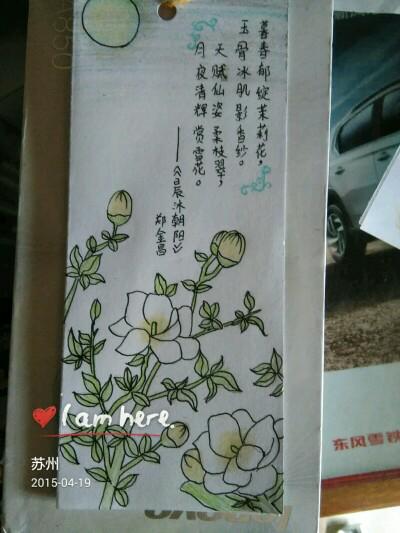 暮春郁绽茉莉花，
玉骨冰肌影香纱。
天赋仙姿柔枝翠，
月夜清辉赏雪花。
——《日辰冰朝阳》
郑金昌
I am here.
苏州
2015-04-19
东风雪铁
lenovo
A850